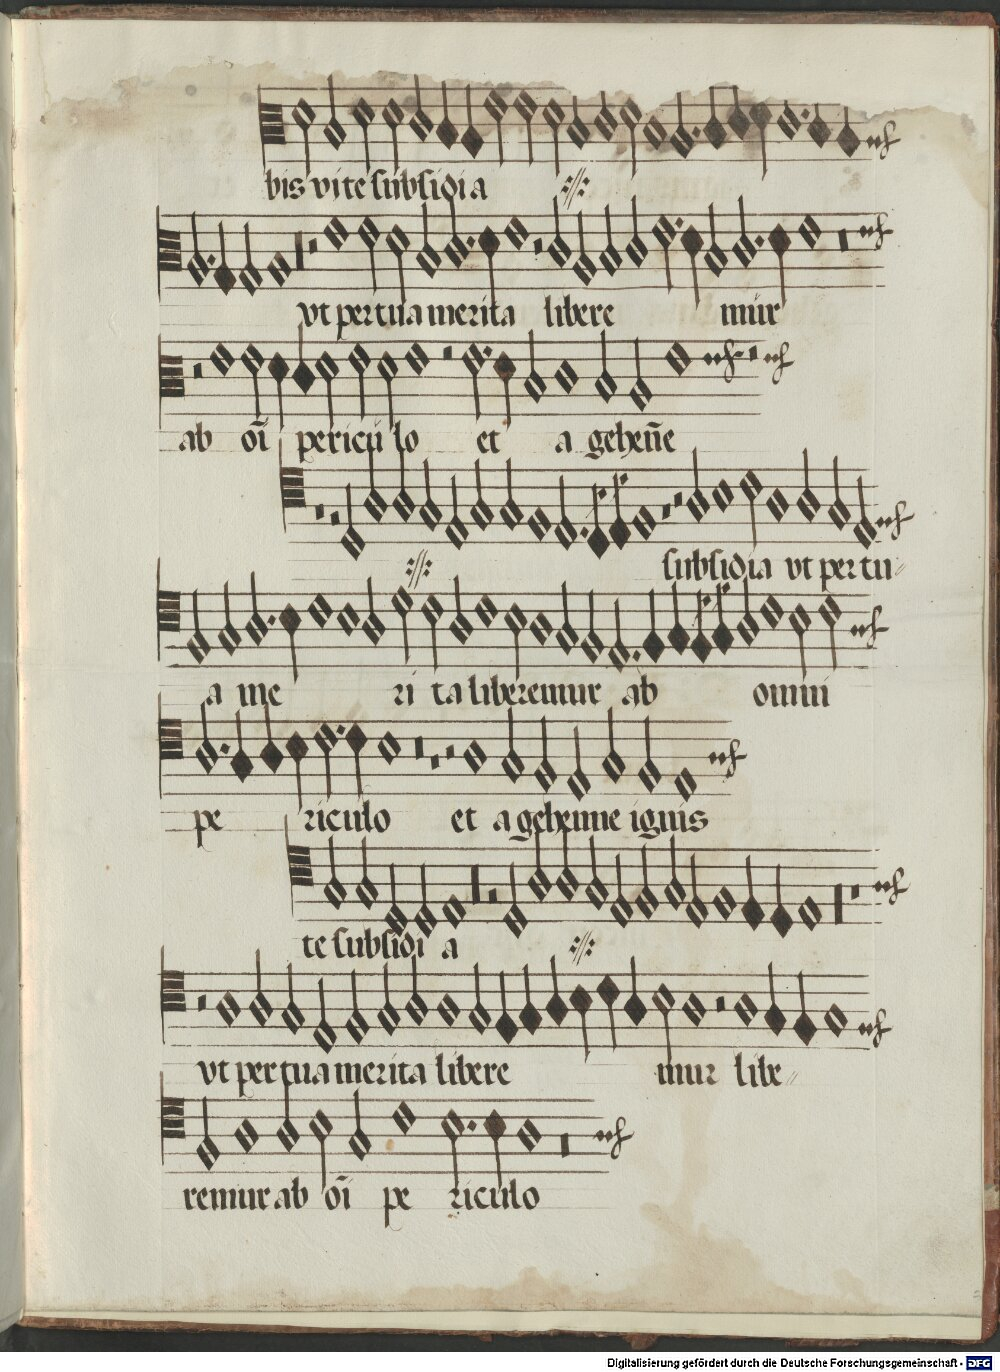 bis vite subsidia
vt per tua merita libere mur
ab oi͞ periculo et a gehen̄e
subsidia vt per tu⸗
a me ri ta liberemur ab omni
pe riculo et a gehenne ignis
te subsidi a
vt per tua merita libere mur libe⸗
remur ab oi͞ pe riculo
Digitalisierung gefördert durch die Deutsche Forschungsgemeinschaft - DFG